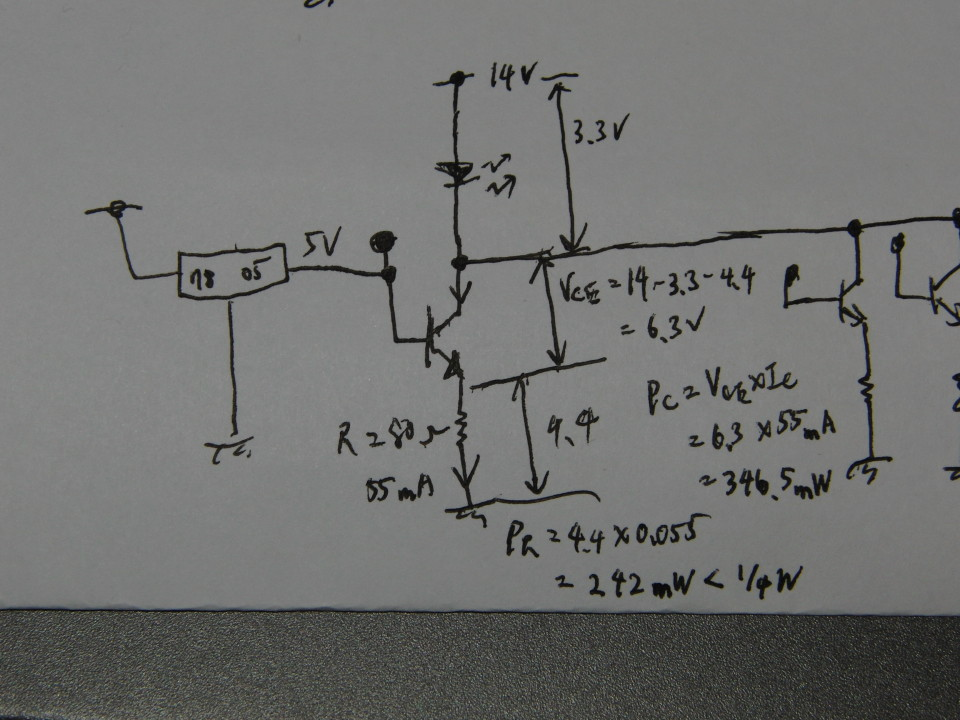 14V
3.3V
5V
78 05
VCE = 14-3.3-4.4
= 6.3V
PC = VCE×IC
= 6.3 × 55mA
= 346.5mW
R = 80Ω
55mA
4.4
PR = 4.4 × 0.055
= 242mW < 1/4W